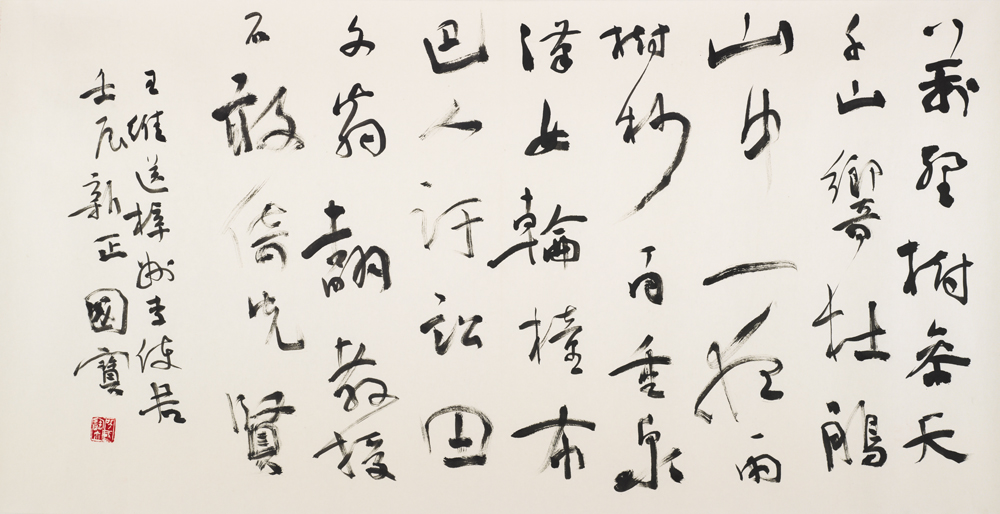 萬壑樹參天
千山響杜鵑
山中一夜雨
樹杪百重泉
漢女輸橦布
巴人訏訟田
文翁翻教授
不敢倚先賢
王維送梓州李使君
壬辰新正國寶